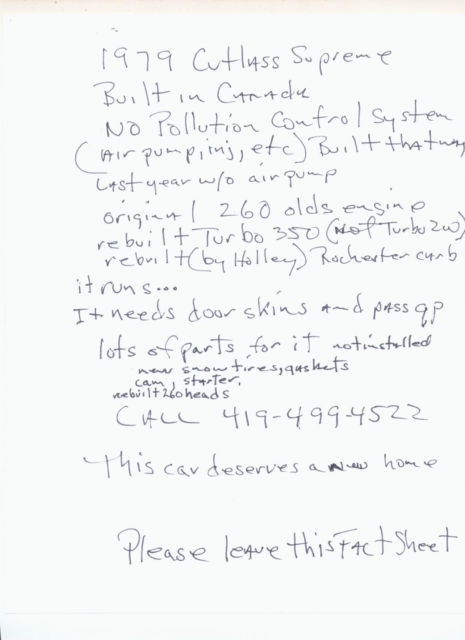 1979 Cutlass Supreme
Built in Canada
No Pollution Control System
(Air pump, inj, etc) Built that way
Last year w/o air pump
original 260 olds engine
rebuilt Turbo 350 (Not Turbo 200)
rebuilt (by Holley) Rochester carb
it runs...
It needs door skins and pass qp
lots of parts for it not installed
new snow tires, gaskets
cam, starter,
rebuilt 260 heads
CALL 419-499-4522
This car deserves a new home
Please leave this Fact Sheet